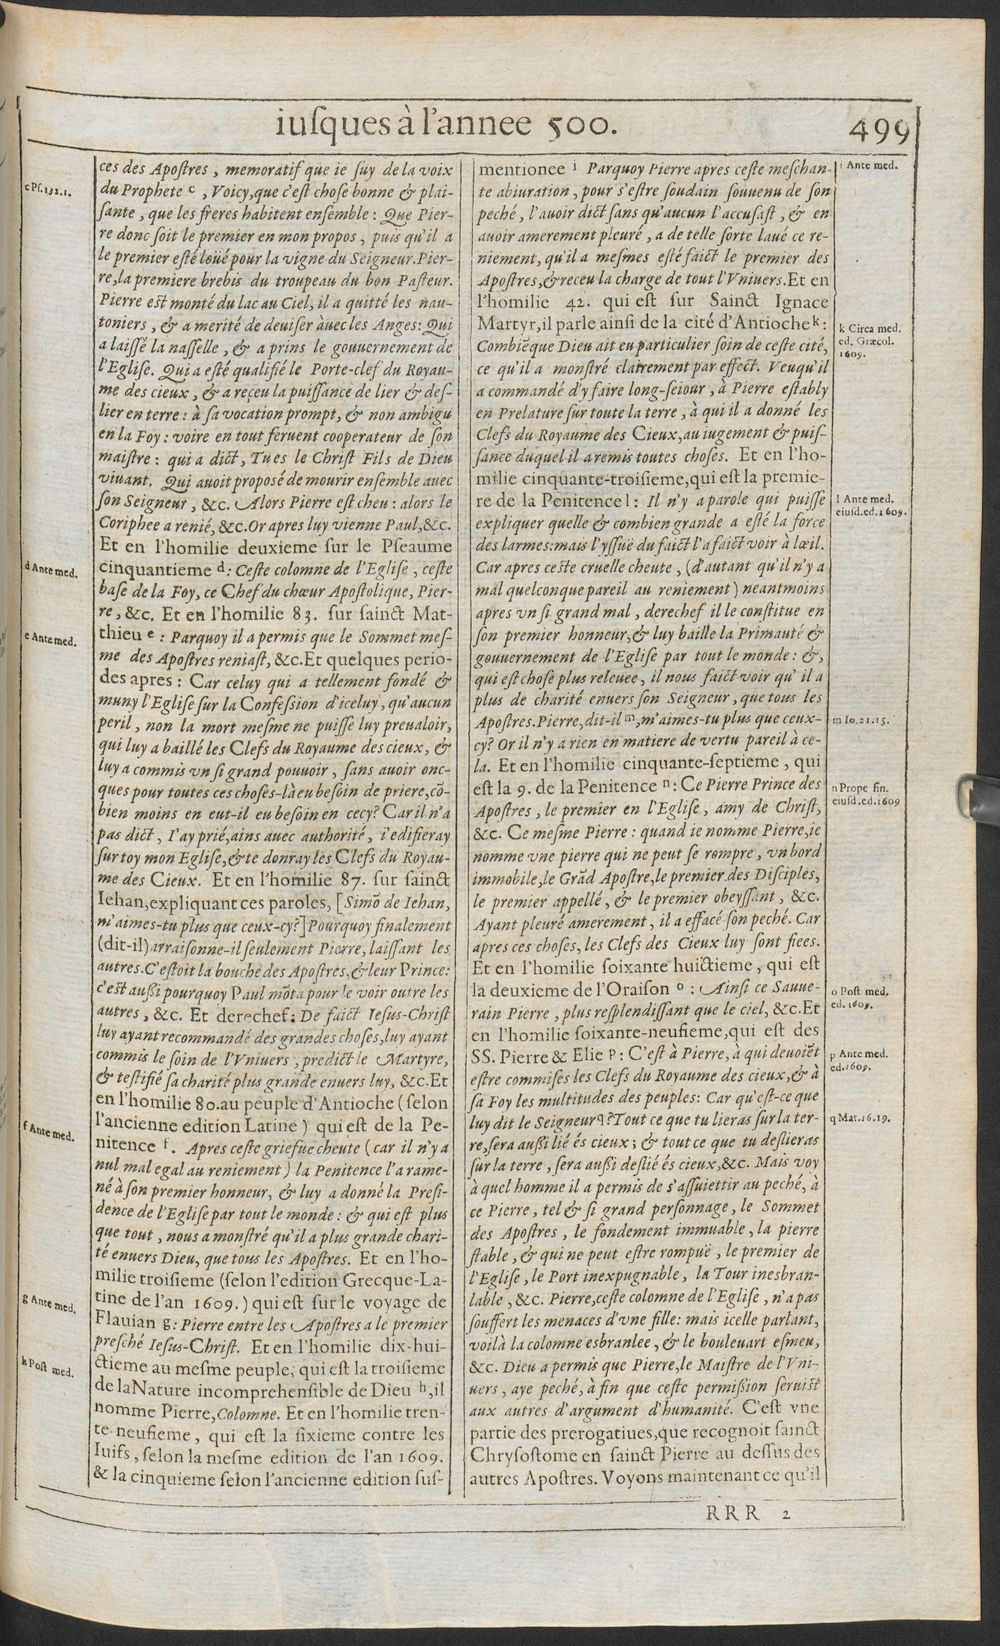 iuſques à l'annee 500.
499
c Pſ.132.1.
ces des Apoſtres, memoratif que ie ſuy de la voix
du Prophete c, Voicy, que c'eſt choſe bonne & plai-
ſante, que les freres habitent enſemble: Que Pier-
re donc ſoit le premier en mon propos, puis qu'il a
le premier eſté loüé pour la vigne du Seigneur. Pier-
re, la premiere brebis du troupeau du bon Paſteur.
Pierre eſt monté du lac au Ciel, il a quitté les nau-
toniers, & a merité de deuiſer àuec les Anges: Qui
a laiſſé la naſſelle, & a prins le gouuernement de
l'Egliſe. Qui a eſté qualifié le Porte-clef du Royau-
me des cieux, & a reçeu la puiſſance de lier & deſ-
lier en terre: à ſa vocation prompt, & non ambigu
en la Foy: voire en tout feruent cooperateur de ſon
maiſtre: qui a dict, Tu es le Chriſt Fils de Dieu
viuant. Qui auoit propoſé de mourir enſemble auec
ſon Seigneur, &c. Alors Pierre eſt cheu: alors le
Coriphee a renié, &c. Or apres luy vienne Paul, &c.
Et en l'homilie deuxieme ſur le Pſeaume
cinquantieme d: Ceſte colomne de l'Egliſe, ceſte
baſe de la Foy, ce Chef du chœur Apoſtolique, Pier-
re, &c. Et en l'homilie 83. ſur ſainct Mat-
thieu e: Parquoy il a permis que le Sommet meſ-
me des Apoſtres reniaſt, &c. Et quelques perio-
des apres: Car celuy qui a tellement fondé &
muny l'Egliſe ſur la Confeſſion d'iceluy, qu'aucun
peril, non la mort meſme ne puiſſe luy preualoir,
qui luy a baillé les Clefs du Royaume des cieux, &
luy a commis vn ſi grand pouuoir, ſans auoir onc-
ques pour toutes ces choſes-là eu beſoin de priere, cō-
bien moins en eut-il eu beſoin en cecy? Car il n'a
pas dict, I'ay prié, ains auec authorité, i'edifieray
ſur toy mon Egliſe, & te donray les Clefs du Royau-
me des Cieux. Et en l'homilie 87. ſur ſainct
Iehan, expliquant ces paroles, [Simō de Iehan,
m'aimes-tu plus que ceux-cy?] Pourquoy finalement
(dit-il) arraiſonne-il ſeulement Pierre, laiſſant les
autres. C'eſtoit la bouche des Apoſtres, & leur Prince:
c'eſt auſſi pourquoy Paul mōta pour le voir outre les
autres, &c. Et derechef: De faict Ieſus-Chriſt
luy ayant recommandé des grandes choſes, luy ayant
commis le ſoin de l'Vniuers, predict le Martyre,
& teſtifié ſa charité plus grande enuers luy, &c. Et
en l'homilie 80. au peuple d'Antioche (ſelon
l'ancienne edition Latine) qui eſt de la Pe-
nitence f. Apres ceſte griefue cheute (car il n'y a
nul mal egal au reniement) la Penitence l'a rame-
né à ſon premier honneur, & luy a donné la Preſi-
dence de l'Egliſe par tout le monde: & qui eſt plus
que tout, nous a monſtré qu'il a plus grande chari-
té enuers Dieu, que tous les Apoſtres. Et en l'ho-
milie troiſieme (ſelon l'edition Grecque-La-
tine de l'an 1609.) qui eſt ſur le voyage de
Flauian g: Pierre entre les Apoſtres a le premier
preſché Ieſus-Chriſt. Et en l'homilie dix-hui-
ctieme au meſme peuple, qui eſt la troiſieme
de la Nature incomprehenſible de Dieu h, il
nomme Pierre, Colomne. Et en l'homilie tren-
te-neufieme, qui eſt la ſixieme contre les
Iuifs, ſelon la meſme edition de l'an 1609.
& la cinquieme ſelon l'ancienne edition ſuſ-
d Ante med.
e Ante med.
f Ante med.
g Ante med.
h Poſt med.
mentionee i Parquoy Pierre apres ceſte meſchan-
te abiuration, pour s'eſtre ſoudain ſouuenu de ſon
peché, l'auoir dict ſans qu'aucun l'accuſaſt, & en
auoir amerement pleuré, a de telle ſorte laué ce re-
niement, qu'il a meſmes eſté faict le premier des
Apoſtres, & receu la charge de tout l'Vniuers. Et en
l'homilie 42. qui eſt ſur Sainct Ignace
Martyr, il parle ainſi de la cité d'Antioche k:
Combiē que Dieu ait eu particulier ſoin de ceſte cité,
ce qu'il a monſtré clairement par effect. Veu qu'il
a commandé d'y faire long-ſeiour, à Pierre eſtably
en Prelature ſur toute la terre, à qui il a donné les
Clefs du Royaume des Cieux, au iugement & puiſ-
ſance duquel il a remis toutes choſes. Et en l'ho-
milie cinquante-troiſieme, qui eſt la premie-
re de la Penitence l: Il n'y a parole qui puiſſe
expliquer quelle & combien grande a eſté la force
des larmes: mais l'yſſuë du faict l'a faict voir à l'œil.
Car apres ceſte cruelle cheute, (d'autant qu'il n'y a
mal quelconque pareil au reniement) neantmoins
apres vn ſi grand mal, derechef il le conſtitue en
ſon premier honneur, & luy baille la Primauté &
gouuernement de l'Egliſe par tout le monde: &,
qui eſt choſe plus releuee, il nous faict voir qu'il a
plus de charité enuers ſon Seigneur, que tous les
Apoſtres. Pierre, dit-il m, m'aimes-tu plus que ceux-
cy? Or il n'y a rien en matiere de vertu pareil à ce-
la. Et en l'homilie cinquante-ſeptieme, qui
eſt la 9. de la Penitence n: Ce Pierre Prince des
Apoſtres, le premier en l'Egliſe, amy de Chriſt,
&c. Ce meſme Pierre: quand ie nomme Pierre, ie
nomme vne pierre qui ne peut ſe rompre, vn bord
immobile, le Grād Apoſtre, le premier des Diſciples,
le premier appellé, & le premier obeyſſant, &c.
Ayant pleuré amerement, il a effacé ſon peché. Car
apres ces choſes, les Clefs des Cieux luy ſont fiees.
Et en l'homilie ſoixante huictieme, qui eſt
la deuxieme de l'Oraiſon o: Ainſi ce Sauue-
rain Pierre, plus reſplendiſſant que le ciel, &c. Et
en l'homilie ſoixante-neufieme, qui eſt des
SS. Pierre & Elie p: C'eſt à Pierre, à qui deuoiēt
eſtre commiſes les Clefs du Royaume des cieux, & à
ſa Foy les multitudes des peuples: Car qu'eſt-ce que
luy dit le Seigneur q? Tout ce que tu lieras ſur la ter-
re, ſera auſſi lié és cieux; & tout ce que tu deſlieras
ſur la terre, ſera auſſi deſlié és cieux, &c. Mais voy
à quel homme il a permis de s'aſſuiettir au peché, à
ce Pierre, tel & ſi grand perſonnage, le Sommet
des Apoſtres, le fondement immuable, la pierre
ſtable, & qui ne peut eſtre rompuë, le premier de
l'Egliſe, le Port inexpugnable, la Tour inesbran-
lable, &c. Pierre, ceſte colomne de l'Egliſe, n'a pas
ſouffert les menaces d'vne fille: mais icelle parlant,
voilà la colomne esbranlee, & le bouleuart eſmeu,
&c. Dieu a permis que Pierre, le Maiſtre de l'Vni-
uers, aye peché, à fin que ceſte permiſſion ſeruiſt
aux autres d'argument d'humanité. C'eſt vne
partie des prerogatiues, que recognoit ſainct
Chryſoſtome en ſainct Pierre au deſſus des
autres Apoſtres. Voyons maintenant ce qu'il
i Ante med.
k Circa med.
ed. Græcol.
1609.
l Ante med.
eiuſd. ed. 1609.
m Io. 21. 15.
n Prope fin.
eiuſd. ed. 1609
o Poſt med.
ed. 1609.
p Ante med.
ed. 1609.
q Mat. 16. 19.
RRR 2